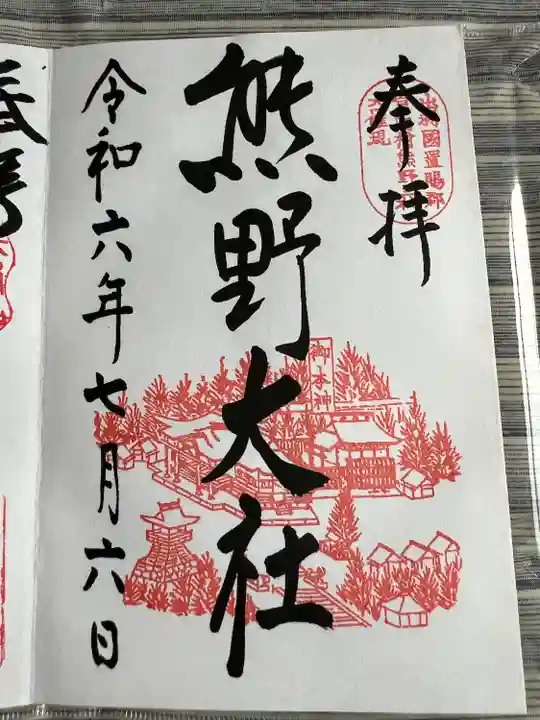 奉拝
出羽國置賜郡
熊野
大權現
御本神
熊野大社
令和六年七月六日